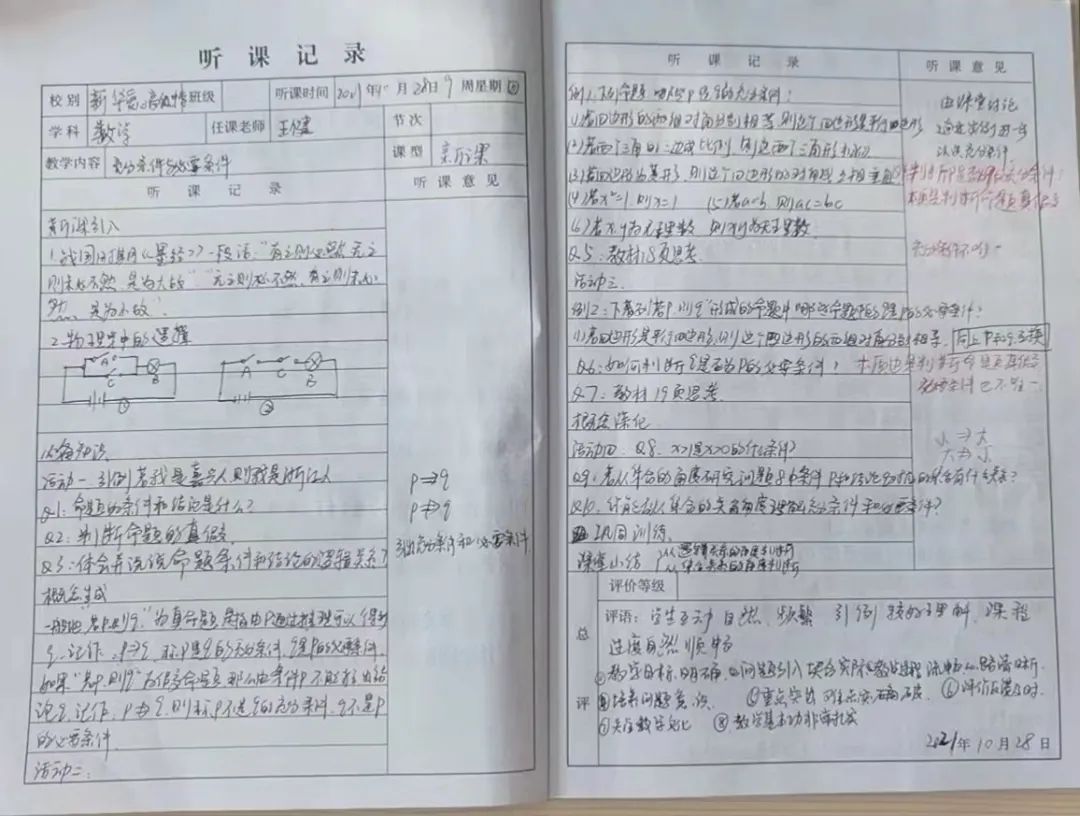 听课记录
校别 新华 高级中 班级 听课时间 2021年10月28日9周星期四
学科 数学 任课老师 王健 节次
教学内容 充分条件与必要条件 课型 新课
听课记录 听课意见
新课引入
1.战国时期《墨经》一段话:"有之则必然,无之
则未必不然,是为大故""无之则必不然,有之则未必
然,是为小故".
2.物理中的逻辑
A C B A C B
① ②
活动一:引例 若我是嘉兴人,则我是浙江人
Q1:命题的条件和结论是什么?
Q2:判断命题的真假
Q3:体会并说说命题条件和结论的逻辑关系?
p⇒q
p⇏q
引出充分条件和必要条件
概念生成
一般地,"若p,则q"为真命题,是指由p通过推理可以得出
q,记作:p⇒q,称p是q的充分条件,q是p的必要条件.
如果"若p,则q"为假命题,那么由条件p不能推出结
论q,记作:p⇏q,则称p不是q的充分条件,q不是p
的必要条件.
活动二:
听课记录 听课意见
例1.下列命题 哪些p是q的充分条件:
(1)若四边形的两组对角分别相等,则这个四边形是平行四边形
(2)若两个三角形三边成比例,则这两个三角形相似
(3)若四边形为菱形,则这个四边形的对角线互相垂直
(4)若x²=1,则x=1 (5)若a=b,则ac=bc
(6)若x,y为无理数,则xy为无理数
Q5:教材18页思考.
由课堂讨论
认识充分条件
本质是判断命题真假
充分条件不唯一
活动三.
例2:下列"若p,则q"形式的命题中,哪些命题中的q是p的必要条件?
(1)若四边形是平行四边形,则这个四边形的两组对角分别相等. 同上p和q互换
Q6:如何判断q是否为p的必要条件? 本质也是判断命题真假
Q7:教材19页思考. 必要条件也不唯一
概念深化 小⇒大
大⇏小
活动四 Q8.
Q9:若从集合的角度研究问题8中条件p和结论q对应的集合有什么关系?
Q10.
巩固训练.
课堂小结 从逻辑关系的角度判断
从集合关系的角度判断
评价等级
总评
评语:学生互动自然、频繁 引例较好理解,课程
进度自然顺畅
①教学目标明确,由问题引入,联系实际 ②教学过程流畅,思路清晰.
③培养问题意识. ④重点突出 ⑥评价反馈及时.
⑦关注数学文化 ⑧教学基本功非常扎实
2021年10月28日